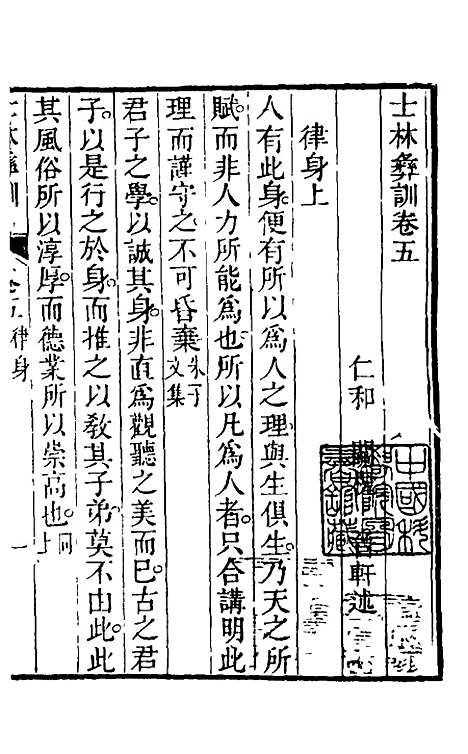 士林彝訓卷五
仁和 軒述
律身上
人有此身便有所以爲人之理與生俱生乃天之所
賦而非人力所能爲也所以凡爲人者只合講明此
理而謹守之不可昏棄朱子文集
君子之學以誠其身非直爲觀聽之美而已古之君
子以是行之於身而推之以敎其子弟莫不由此此
其風俗所以淳厚而德業所以崇高也同上
卷五律身
一